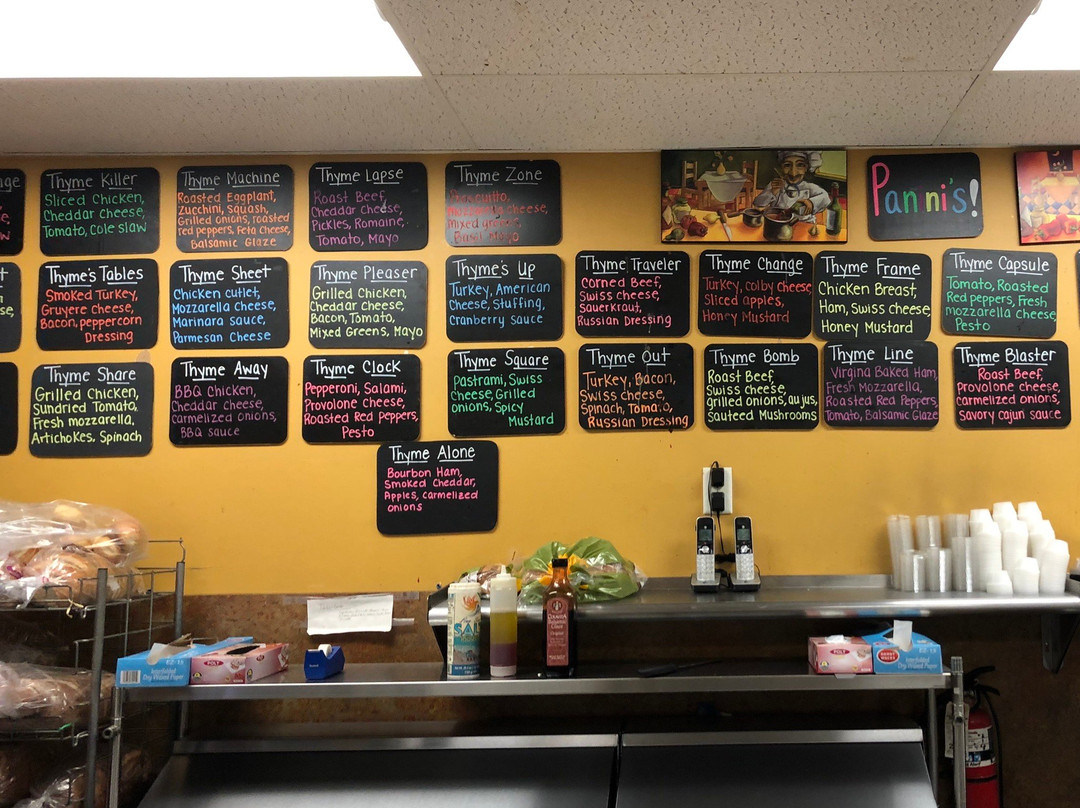 Thyme Killer
Sliced Chicken,
Cheddar Cheese,
Tomato, Cole slaw
Thyme Machine
Roasted Eggplant,
Zucchini, squash,
Grilled onions, roasted
red peppers, Feta cheese,
Balsamic Glaze
Thyme Lapse
Roast Beef,
Cheddar Cheese,
Pickles, Romaine,
Tomato, Mayo
Thyme Zone
Prosciutto,
Mozzarella cheese,
Mixed greens,
Basil Mayo
Panini's!
Thyme's Tables
Smoked Turkey,
Gruyere cheese,
Bacon, peppercorn
Dressing
Thyme Sheet
Chicken cutlet,
Mozzarella Cheese,
Marinara sauce,
Parmesan Cheese
Thyme Pleaser
Grilled Chicken,
Cheddar cheese,
Bacon, Tomato,
Mixed Greens, Mayo
Thyme's Up
Turkey, American
Cheese, Stuffing,
Cranberry Sauce
Thyme Traveler
Corned Beef,
Swiss cheese,
Sauerkraut,
Russian Dressing
Thyme Change
Turkey, colby cheese
Sliced apples,
Honey Mustard
Thyme Frame
Chicken Breast,
Ham, Swiss cheese,
Honey Mustard
Thyme Capsule
Tomato, Roasted
Red peppers, Fresh
mozzarella cheese,
Pesto
Thyme Share
Grilled Chicken,
Sundried Tomato,
Fresh mozzarella,
Artichokes, Spinach
Thyme Away
BBQ Chicken,
Cheddar cheese,
Carmelized onions,
BBQ sauce
Thyme Clock
Pepperoni, Salami,
Provolone Cheese,
Roasted Red peppers,
Pesto
Thyme Square
Pastrami, Swiss
Cheese, Grilled
onions, Spicy
Mustard
Thyme Out
Turkey, Bacon,
Swiss cheese,
Spinach, Tomato,
Russian Dressing
Thyme Bomb
Roast Beef
Swiss cheese,
Grilled onions, au jus,
Sauteed Mushrooms
Thyme Line
Virgina Baked Ham,
Fresh Mozzarella,
Roasted Red Peppers,
Tomato, Balsamic Glaze
Thyme Blaster
Roast Beef,
Provolone cheese,
carmelized onions,
savory cajun sauce
Thyme Alone
Bourbon Ham,
Smoked Cheddar,
Apples, carmelized
onions